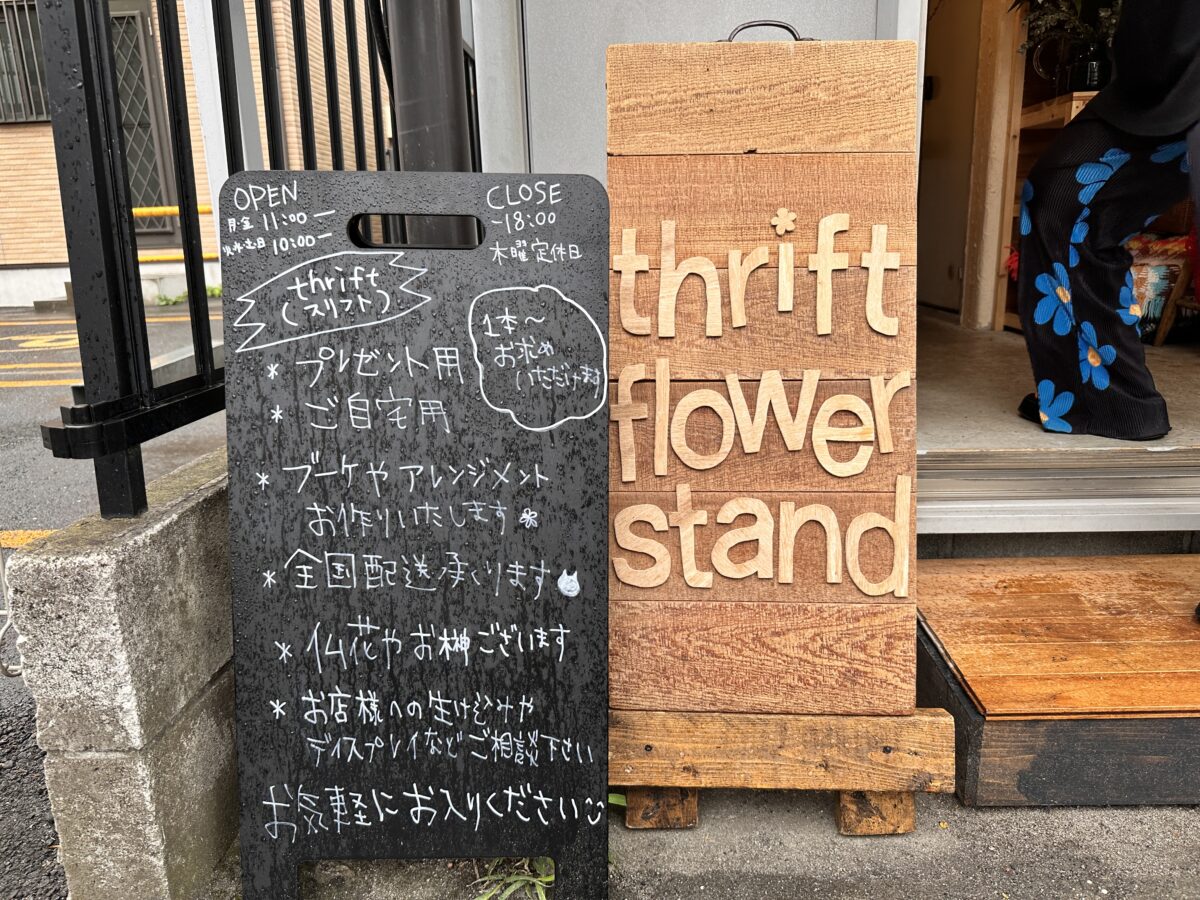 OPEN
月・金 11:00 ―
火・水・土・日 10:00 ―
CLOSE
-18:00
木曜定休日
thrift
(スリフト)
1本〜
お求め
いただけます
* プレゼント用
* ご自宅用
* ブーケやアレンジメント
お作りいたします
* 全国配送承ります
* 仏花やお榊ございます
* お店様への生け込みや
ディスプレイなどご相談下さい
お気軽にお入りください
thrift
flower
stand